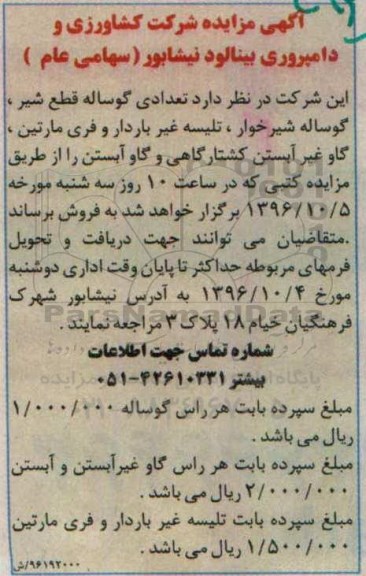 آگهی مزایده شرکت کشاورزی و
دامپروری بینالود نیشابور (سهامی عام )
این شرکت در نظر دارد تعدادی گوساله قطع شیر ،
گوساله شیرخوار ، تلیسه غیر باردار و فری مارتین ،
گاو غیر آبستن کشتارگاهی و گاو آبستن را از طریق
مزایده کتبی که در ساعت ۱۰ روز سه شنبه مورخه
۱۳۹۶/۱۰/۵ برگزار خواهد شد به فروش برساند
.متقاضیان می توانند جهت دریافت و تحویل
فرمهای مربوطه حداکثر تا پایان وقت اداری دوشنبه
مورخ ۱۳۹۶/۱۰/۴ به آدرس نیشابور شهرک
فرهنگیان خیام ۱۸ پلاک ۳ مراجعه نمایند .
ParsNamadData
شماره تماس جهت اطلاعات
بیشتر ۴۲۶۱۰۳۳۱-۰۵۱
مبلغ سپرده بابت هر راس گوساله ۱/۰۰۰/۰۰۰
ریال می باشد .
مبلغ سپرده بابت هر راس گاو غیرآبستن و آبستن
۲/۰۰۰/۰۰۰ ریال می باشد .
مبلغ سپرده بابت تلیسه غیر باردار و فری مارتین
۱/۵۰۰/۰۰۰ ریال می باشد .
۹۶۱۹۲۰۰۰/ش